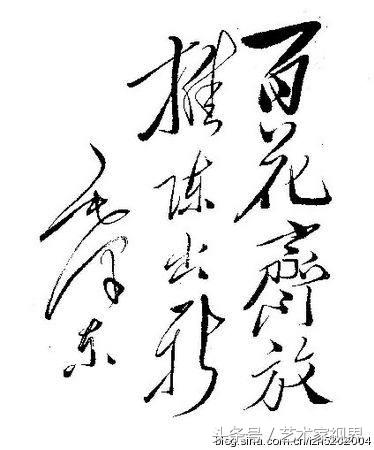 百花齊放
推陈出新
毛泽东
头条号/艺术家视界
blog.sina.com.cn/lzh5202004